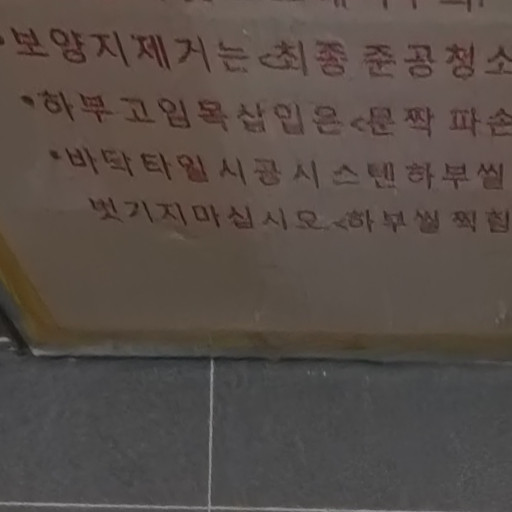 •보양지제거는<최종 준공청소
•하부고임목삽입은<문짝 파손
•바닥타일시공시스텐하부씰
벗기지마십시오<하부씰 찍힘